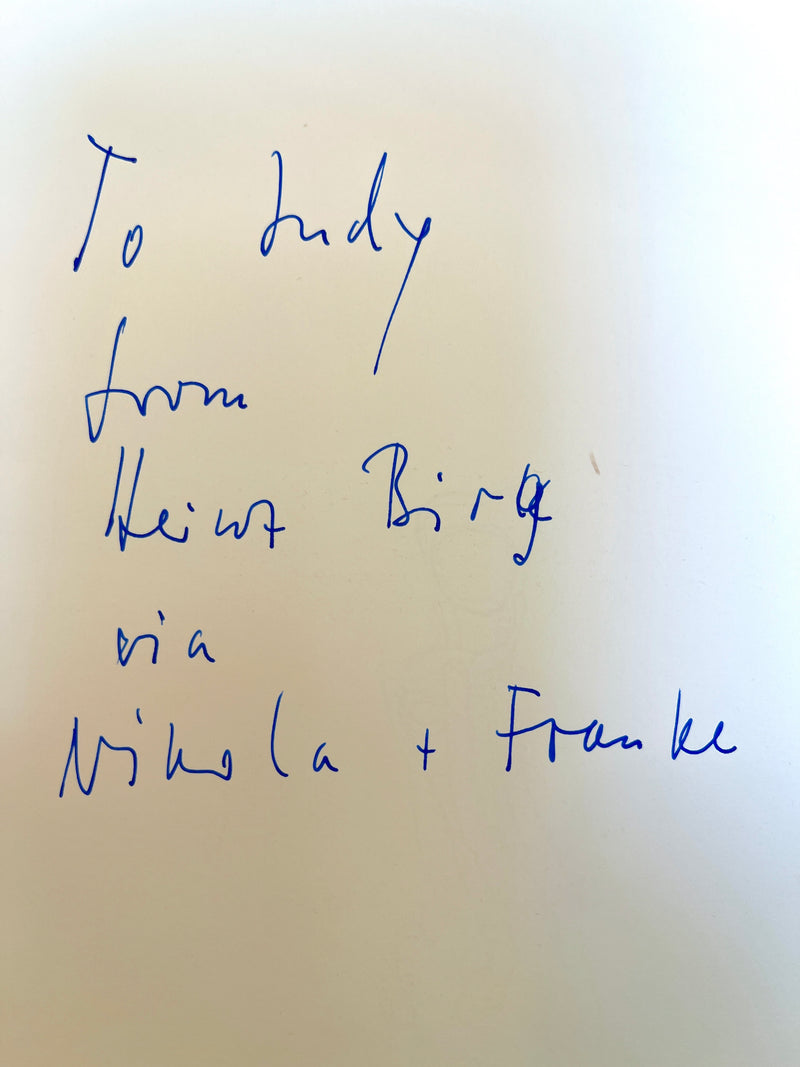 To Judy
from
Heinz Birg
via
Nikola + Franke